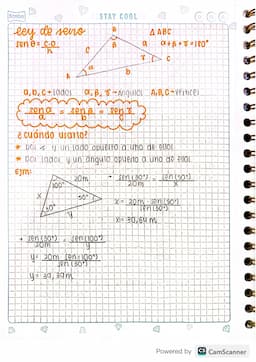 STAY COOL
ley de seno
Δ ABC
sen θ = c.o / h
α + β + γ = 180°
B
β
c
a
A
α
b
γ
C
a, b, c → lados
α, β, γ → ángulos
A, B, C → vértices
sen α / a = sen β / b = sen γ / c
¿cuándo usarlo?
• Dos ∢ y un lado opuesto a uno de ellos
• Dos lados y un ángulo opuesto a uno de ellos
Ejm:
20m
100°
x
50°
30°
y
• sen(50°) / 20m = sen(30°) / x
x = 20m · sen(50°) / sen(30°)
x = 30,64m
• sen(30°) / 20m = sen(100°) / y
y = 20m · sen(100°) / sen(30°)
y = 39,39m
Powered by CS CamScanner